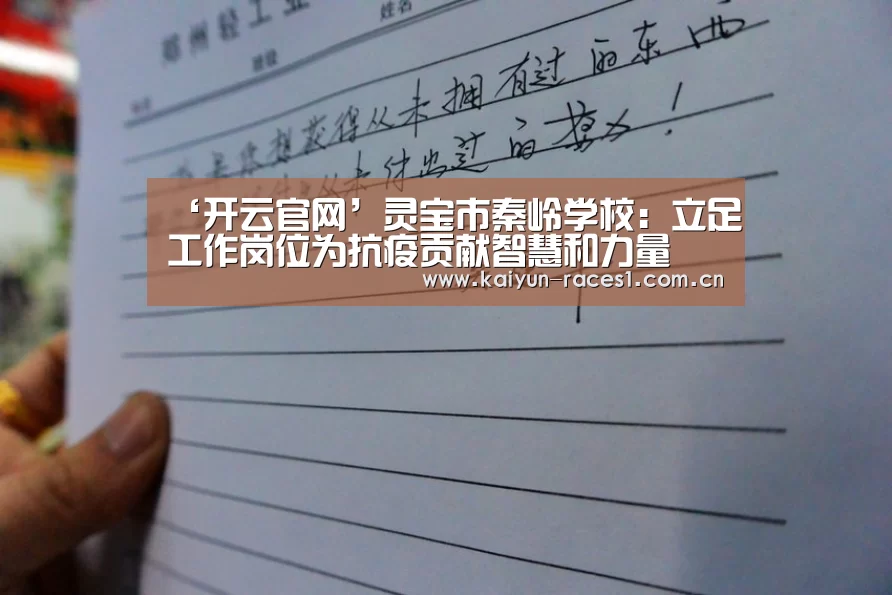 郑州轻工业
姓名
想获得从未拥有过的东西
从未付出过的努力！
‘开云官网’灵宝市秦岭学校：立足
工作岗位为抗疫贡献智慧和力量
www.kaiyun-races1.com.cn